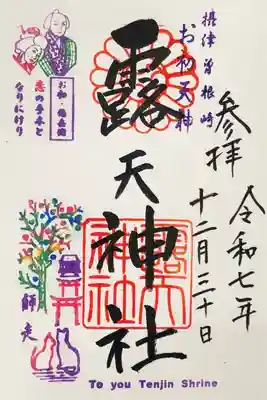 摂津曽根崎
お初天神
参拝
令和七年
十二月三十日
露天神社
お初・徳兵衛
恋の手本と
なりにけり
師走
露天神社
To you Tenjin Shrine